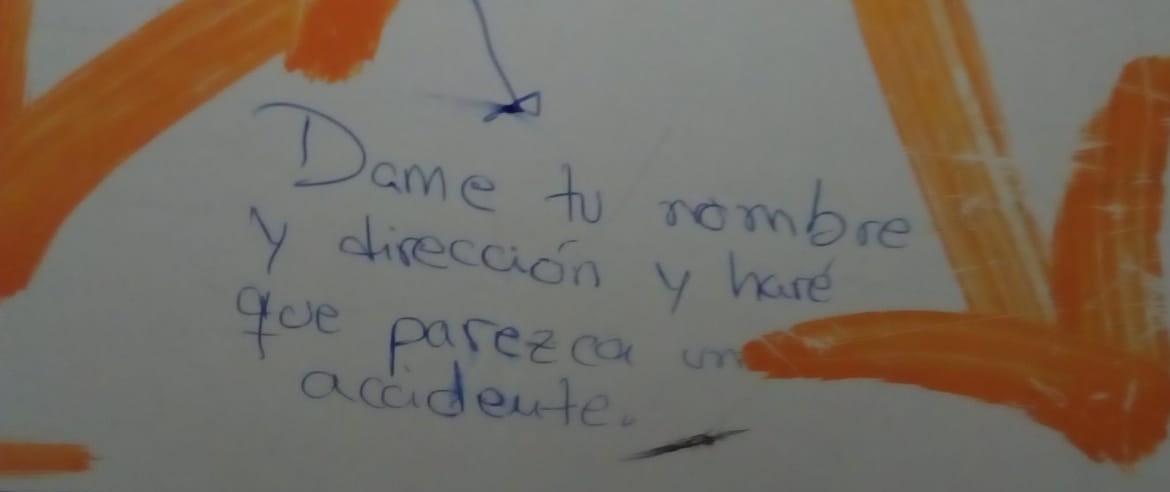 Dame tu nombre
y dirección y haré
que parezca un
accidente.